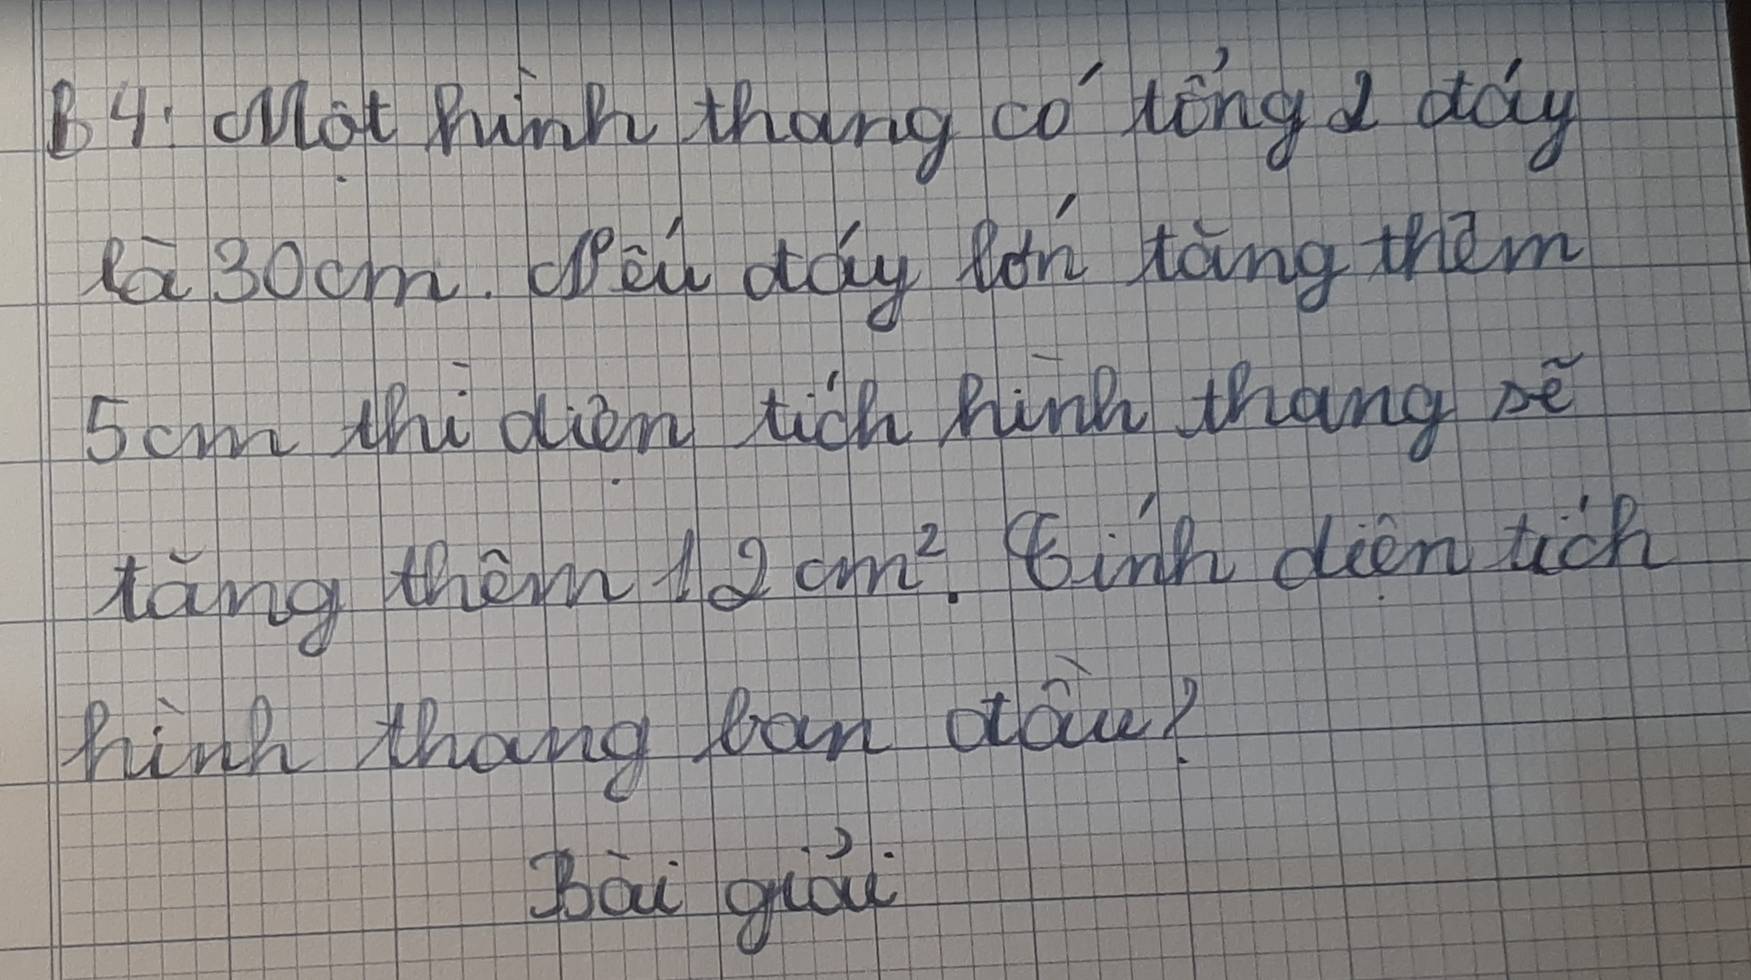 B4: Một hình thang có tổng 2 đáy
là 30cm. Nếu đáy lớn tăng thêm
5cm thì diện tích hình thang sẽ
tăng thêm 12cm². Tính diện tích
hình thang ban đầu?
Bài giải